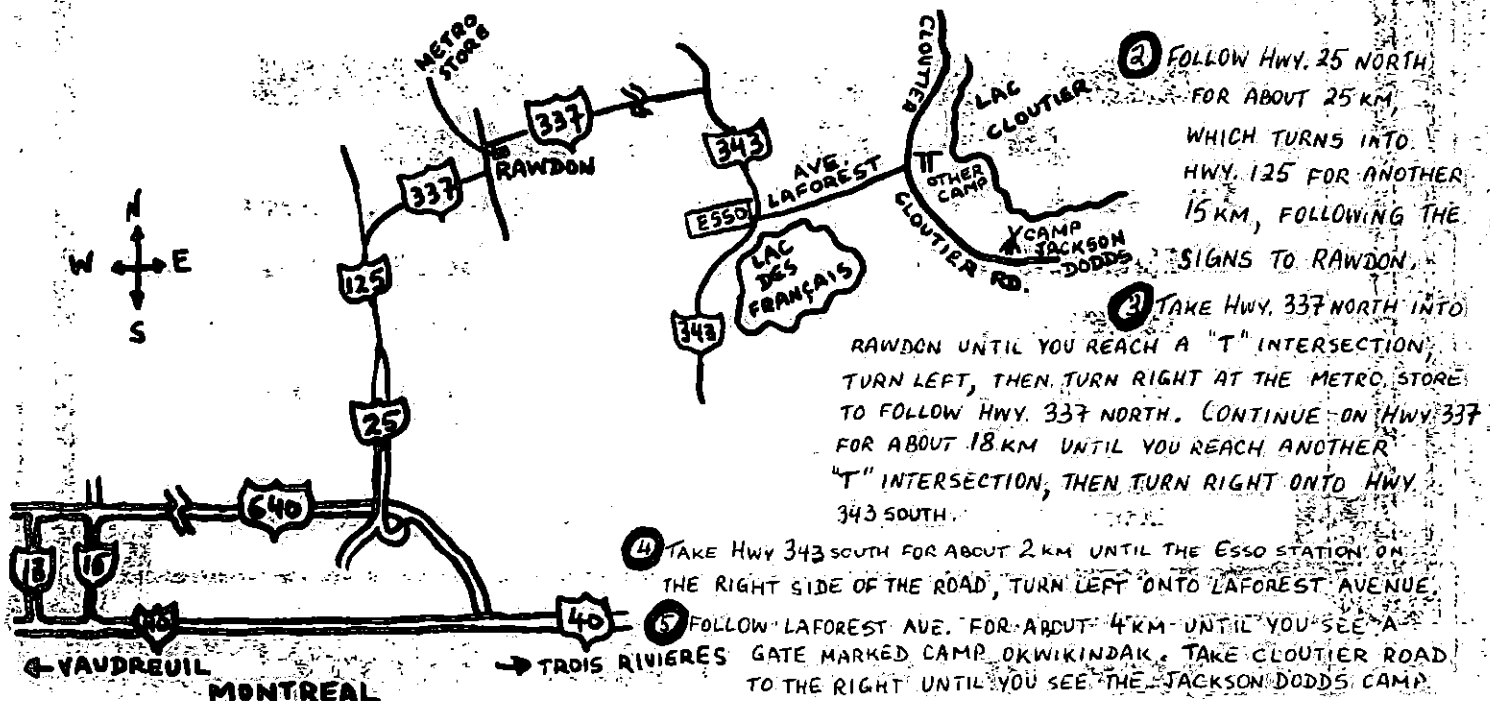 METRO
STORE
337
RAWDON
337
343
AVE.
LAFOREST
ESSO
LAC
DES
FRANÇAIS
343
CLOUTIER
LAC
CLOUTIER
OTHER
CAMP
CLOUTIER RD.
CAMP
JACKSON
DODDS
N
W E
S
125
25
640
13
15
40
40
← VAUDREUIL
→ TROIS RIVIERES
MONTREAL
② FOLLOW HWY. 25 NORTH
FOR ABOUT 25 KM,
WHICH TURNS INTO
HWY. 125 FOR ANOTHER
15 KM, FOLLOWING THE
SIGNS TO RAWDON.
③ TAKE HWY. 337 NORTH INTO
RAWDON UNTIL YOU REACH A "T" INTERSECTION,
TURN LEFT, THEN TURN RIGHT AT THE METRO STORE
TO FOLLOW HWY. 337 NORTH. CONTINUE ON HWY. 337
FOR ABOUT 18 KM UNTIL YOU REACH ANOTHER
"T" INTERSECTION, THEN TURN RIGHT ONTO HWY.
343 SOUTH.
④ TAKE HWY 343 SOUTH FOR ABOUT 2 KM UNTIL THE ESSO STATION ON
THE RIGHT SIDE OF THE ROAD, TURN LEFT ONTO LAFOREST AVENUE.
⑤ FOLLOW LAFOREST AVE. FOR ABOUT 4 KM UNTIL YOU SEE A
GATE MARKED CAMP OKWIKINDAK. TAKE CLOUTIER ROAD
TO THE RIGHT UNTIL YOU SEE THE JACKSON DODDS CAMP